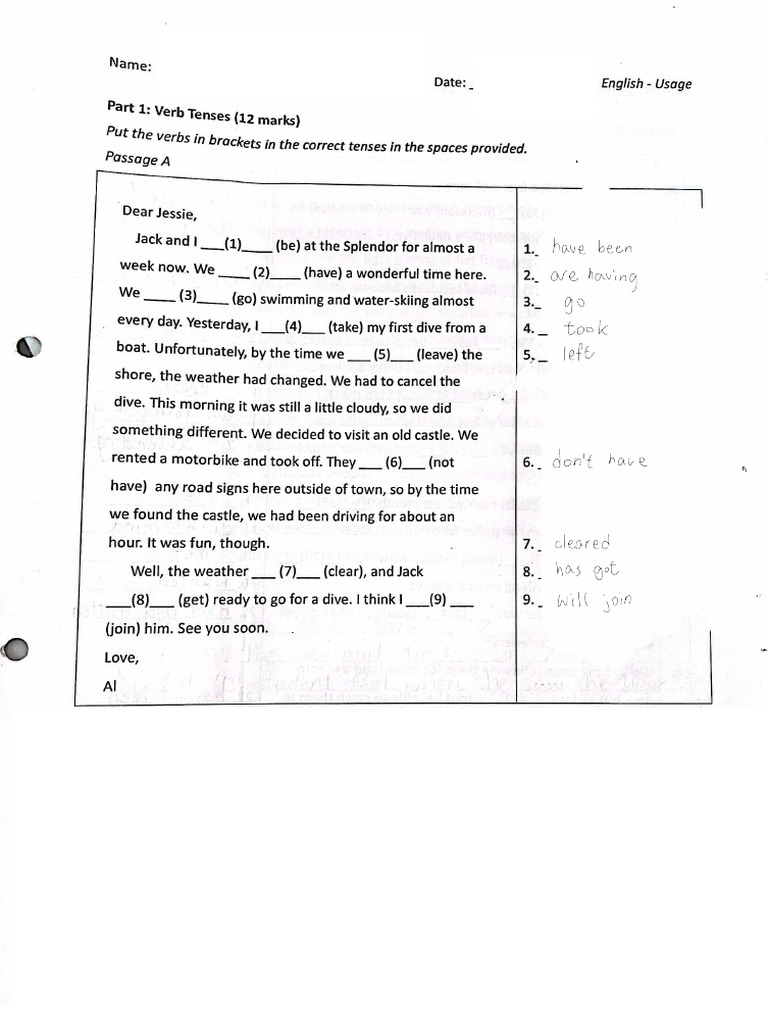 Name:
Date: _ English - Usage
Part 1: Verb Tenses (12 marks)
Put the verbs in brackets in the correct tenses in the spaces provided.
Passage A
Dear Jessie,
Jack and I ___(1)____ (be) at the Splendor for almost a
week now. We ____ (2)____ (have) a wonderful time here.
We ____ (3)____ (go) swimming and water-skiing almost
every day. Yesterday, I ___(4)___ (take) my first dive from a
boat. Unfortunately, by the time we ___ (5)___ (leave) the
shore, the weather had changed. We had to cancel the
dive. This morning it was still a little cloudy, so we did
something different. We decided to visit an old castle. We
rented a motorbike and took off. They ___ (6)___ (not
have) any road signs here outside of town, so by the time
we found the castle, we had been driving for about an
hour. It was fun, though.
Well, the weather ___ (7)___ (clear), and Jack
___(8)___ (get) ready to go for a dive. I think I ___(9) ___
(join) him. See you soon.
Love,
Al
1. _ have been
2. _ are having
3. _ go
4. _ took
5. _ left
6. _ don't have
7. _ cleared
8. _ has got
9. _ will join